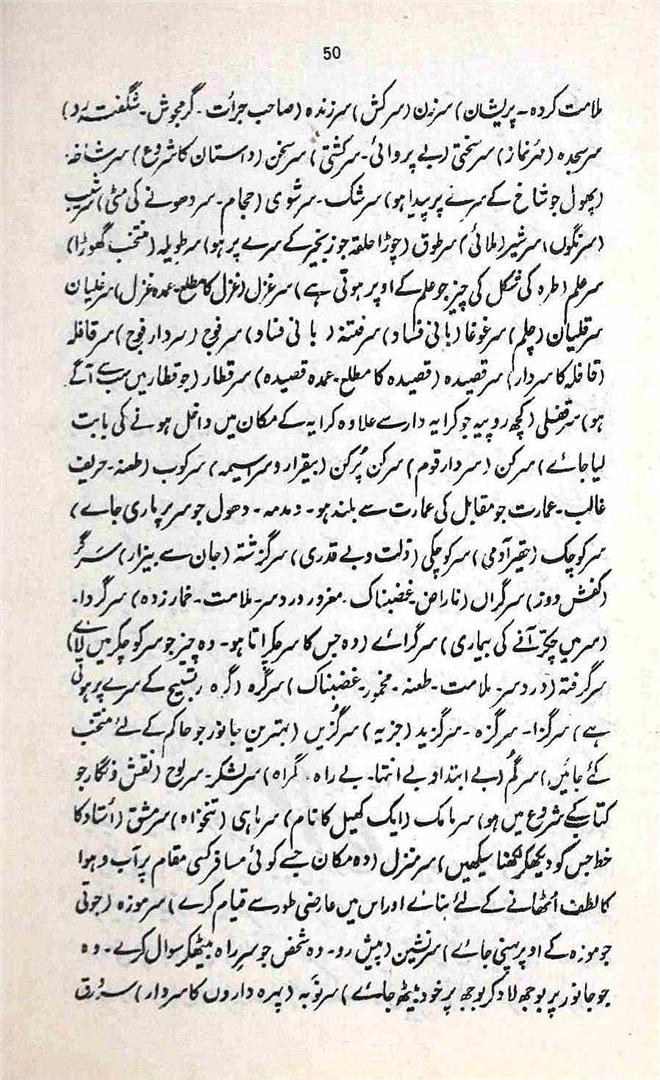 50
ملامت کردہ۔ پریشان) سرزن (سرکش) سرزندہ (صاحب جرأت۔ گرمجوش۔ شگفتہ رو)
سرسجدہ (مہر نماز) سرسختی (بے پروائی۔ سرکشی) سرسخن (داستان کا شروع) سرشاخہ
(پھول جو شاخ کے سرے پر پیدا ہو) سرشک۔ سرشوی (حجام۔ سر دھونے کی مٹی) سرشیب
(سرنگوں) سرشیر (ملائی) سرطوق (چوڑا حلقہ جو زنجیر کے سرے پر ہو) سرطویلہ (منتخب گھوڑا)
سرعلم (طرہ کی شکل کی چیز جو علم کے اوپر ہوتی ہے) سرغزل (غزل کا مطلع۔ عمدہ غزل) سرغلیان
سرقلیان (چلم) سرغوغا (بانی فساد) سرفتنہ (بانی فساد) سرفوج (سردار فوج) سرقافلہ
(قافلہ کا سردار) سرقصیدہ (قصیدہ کا مطلع۔ عمدہ قصیدہ) سرقطار (جو قطار میں سب سے آگے
ہو) سرقفلی (کچھ روپیہ جو کرایہ دار سے علاوہ کرایہ کے مکان میں داخل ہونے کی بابت
لیا جائے) سرکن (سردار قوم) سرکن پُرکن (بیقرار و سراسیمہ) سرکوب (طعنہ۔ حریف
غالب۔ عمارت جو مقابل کی عمارت سے بلند ہو۔ دمدمہ۔ دھول جو سر پر ماری جائے)
سرکوچک (حقیر آدمی) سرکوچکی (ذلت و بے قدری) سرگزشتہ (جان سے بیزار) سرگر
(کفش دوز) سرگراں (ناراض۔ غضبناک۔ مغرور۔ دردسر۔ ملامت۔ خمار زدہ) سرگردا۔
(سر میں چکر آنے کی بیماری) سرگرائے (وہ جس کا سر چکراتا ہو۔ وہ چیز جو سر کو چکر میں لائے)
سرگرفتہ (دردسر۔ ملامت۔ طعنہ۔ مخمور۔ غضبناک) سرگرہ (گرہ جو تسبیح کے سرے پر ہوتی
ہے) سرگزا۔ سرگزہ۔ سرگزید (جزیہ) سرگزیں (بہترین جانور جو حاکم کے لئے منتخب
کئے جائیں) سرگُم (بے ابتدا و بے انتہا۔ بے راہ۔ گمراہ) سرلشکر۔ سرلوح (نقش و نگار جو
کتاب کے شروع میں ہو) سرمامک (ایک کھیل کا نام) سرماہی (تنخواہ) سرمشق (اُستاد کا
خط جس کو دیکھ کر لکھنا سیکھیں) سرمنزل (وہ مکان جسے کوئی مسافر کسی مقام پر آب و ہوا
کا لطف اُٹھانے کے لئے بنائے اور اس میں عارضی طور سے قیام کرے) سرموزہ (جوتی
جو موزہ کے اوپر پہنی جائے) سرنشین (پیش رو۔ وہ شخص جو سرِ راہ بیٹھ کر سوال کرے۔ وہ
جو جانور پر بوجھ لاد کر بوجھ پر خود بیٹھ جائے) سرنوبہ (پہرہ داروں کا سردار)